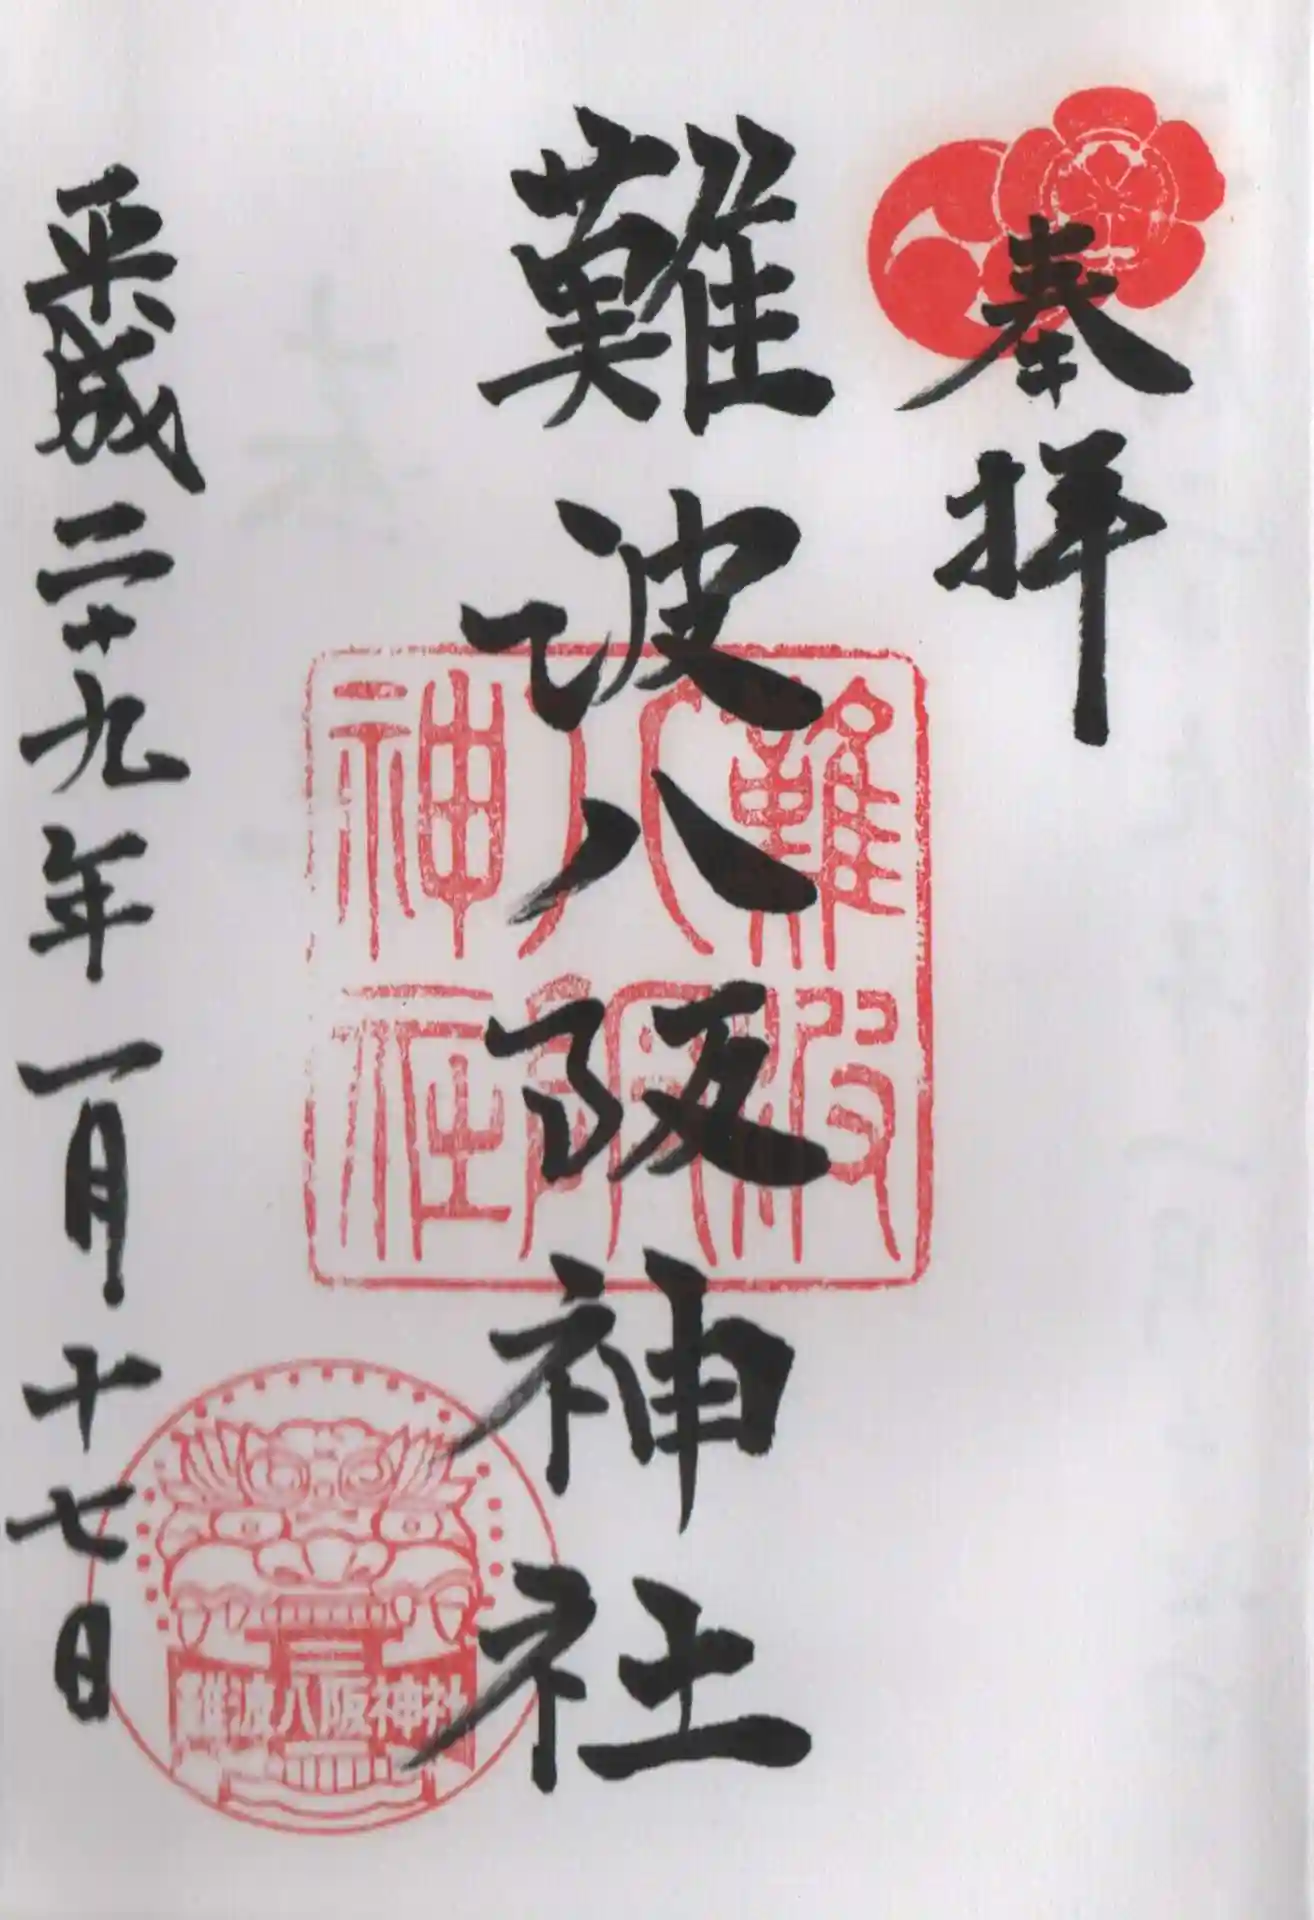 奉拝
難波八阪神社
難波
八阪
神社
難波八阪神社
平成二十九年一月十七日